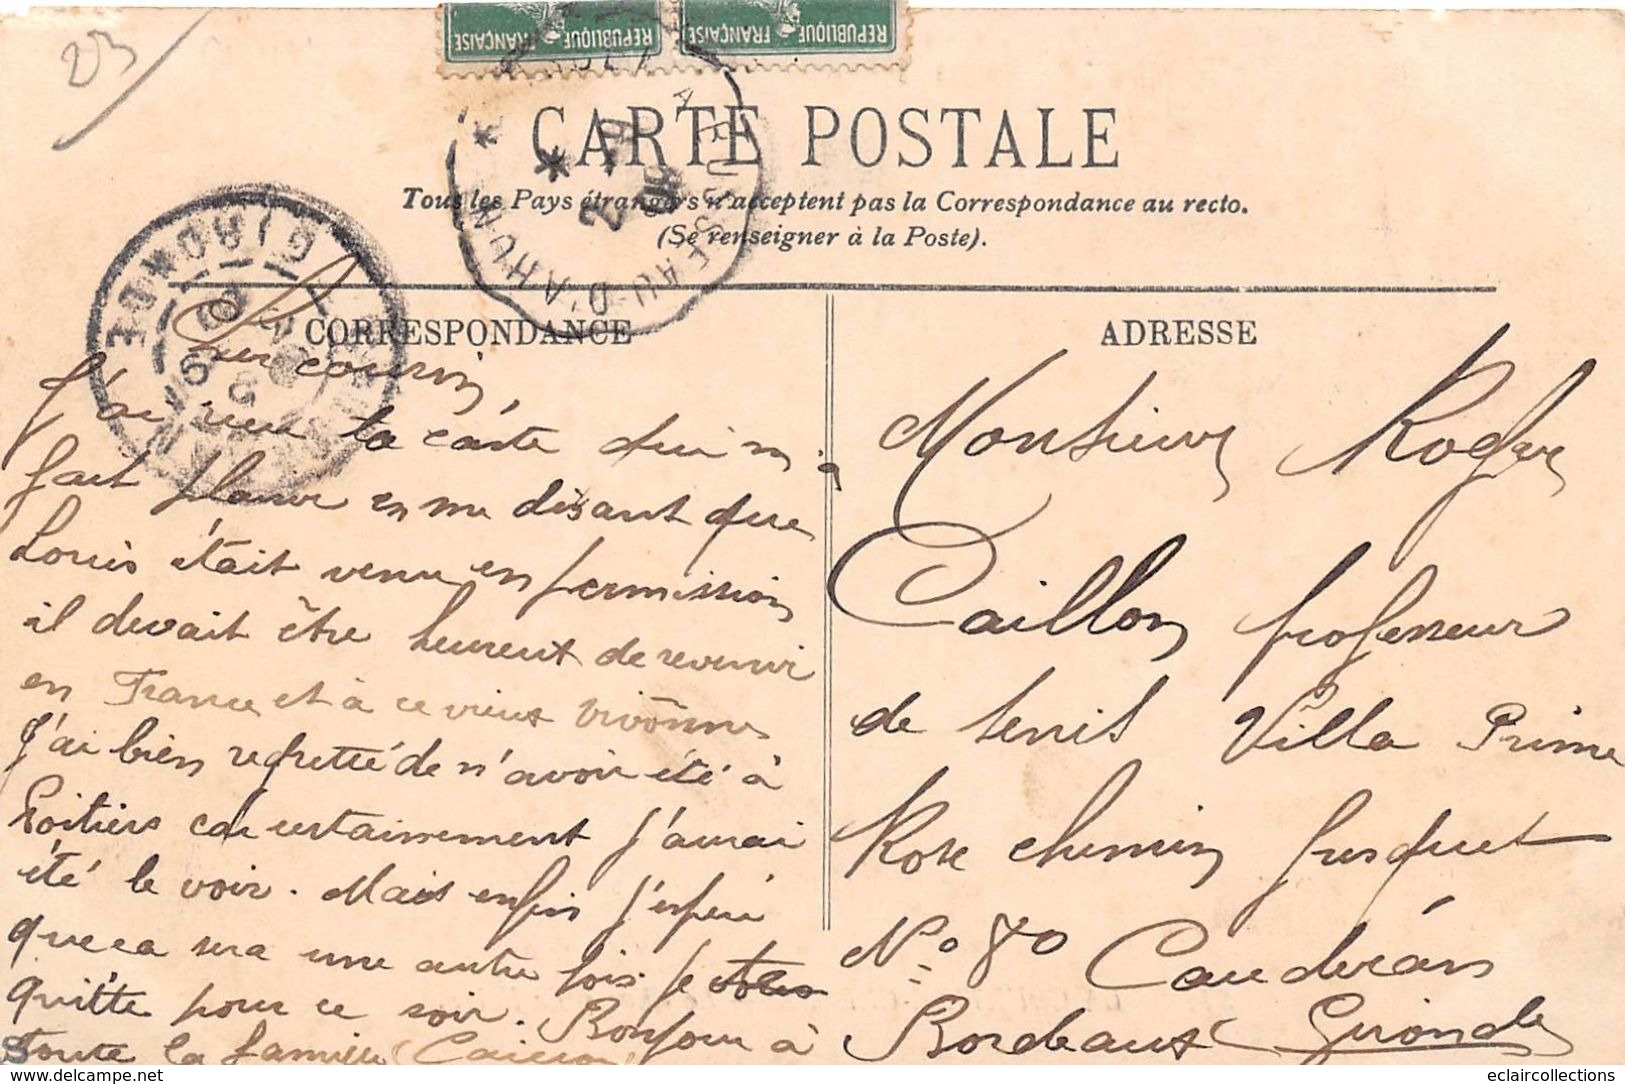 23
REPUBLIQUE FRANÇAISE
REPUBLIQUE FRANÇAISE
CARTE POSTALE
Tous les Pays étrangers n'acceptent pas la Correspondance au recto.
(Se renseigner à la Poste).
AHUN
BUSSEAU-D'AHUN
GIRONDE
CORRESPONDANCE
cher cousin
J'ai reçu ta carte qui m'a
fait plaisir en me disant que
Louis était venu en permission
il devait être heureux de revenir
en France et à ce vieux Vivonne
J'ai bien regretté de n'avoir été à
Poitiers car certainement j'aurai
été le voir. Mais enfin j'espère
que ca sera une autre fois Je
quitte pour ce soir. Bonjour à
toute la famille
ADRESSE
Monsieur Roger
Caillon professeur
de tenis Villa Prime
Rose chemin fusquet
No 80 Caudéran
Bordeaux (Gironde
delcampe.net
eclaircollections